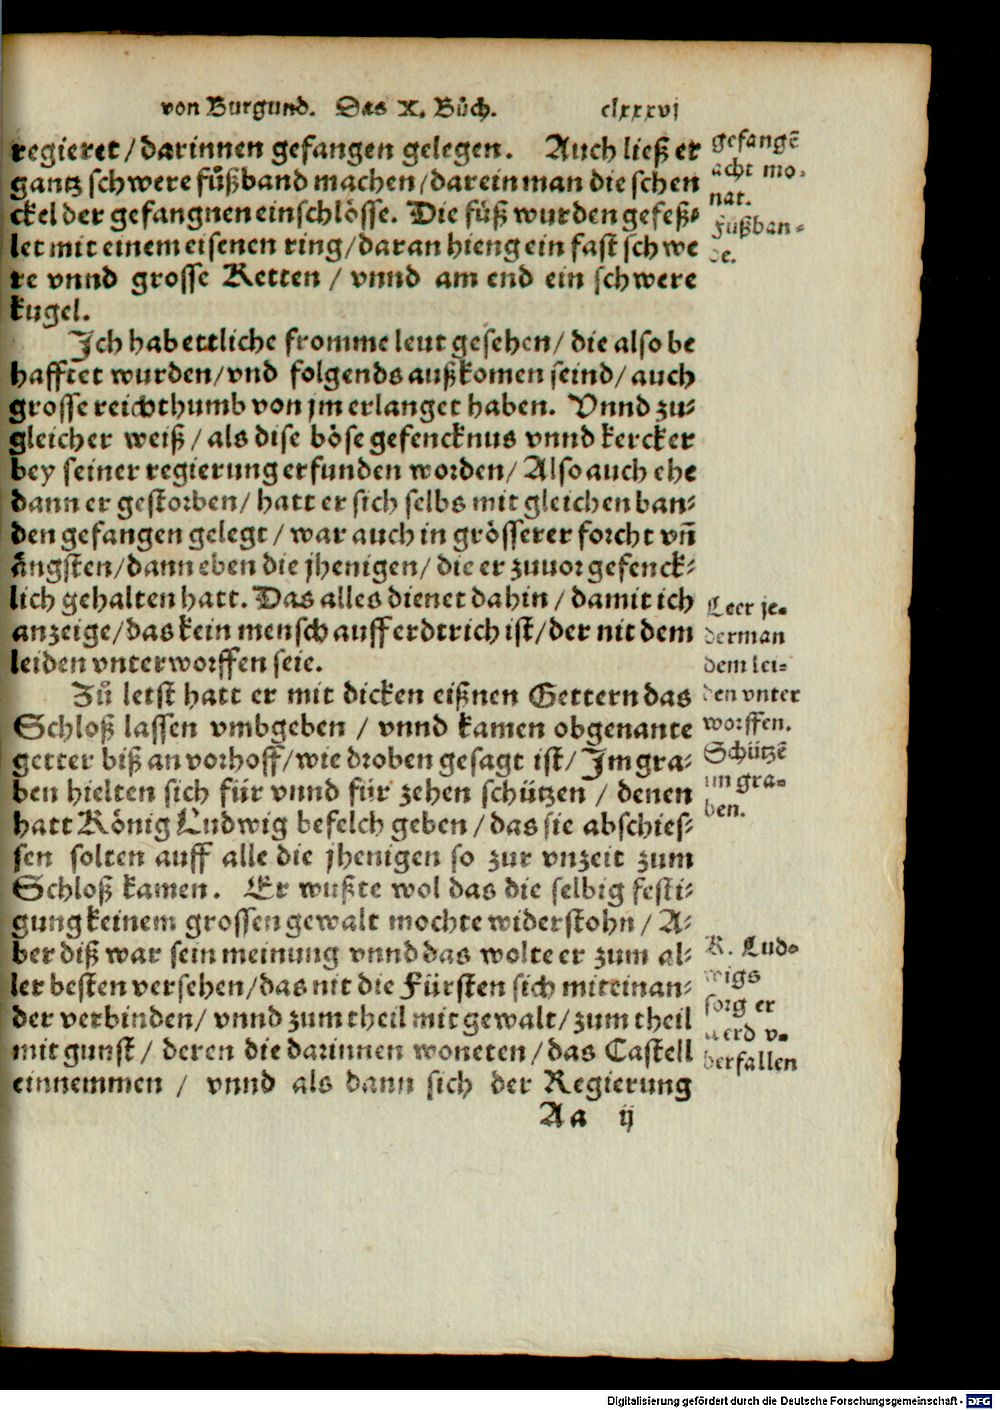 von Burgund. Das X. Bůch. clxxxvj
regieret/darinnen gefangen gelegen. Auch ließ er
gantz schwere fůßband machen/darein man die schen
ckel der gefangnen einschlösse. Die fůß wurden gefeß⸗
let mit einem eisenen ring/daran hieng ein fast schwe
re vnnd grosse Ketten / vnnd am end ein schwere
kugel.
Ich hab ettliche fromme leut gesehen/ die also be
hafftet wurden/vnd folgends außkomen seind/ auch
grosse reichthumb von jm erlanget haben. Vnnd zu⸗
gleicher weiß / als dise böse gefencknus vnnd kercker
bey seiner regierung erfunden worden/ Also auch ehe
dann er gestorben/ hatt er sich selbs mit gleichen ban⸗
den gefangen gelegt / war auch in grösserer forcht vñ
ängsten/dann eben die jhenigen/ die er zuuor gefenck⸗
lich gehalten hatt. Das alles dienet dahin / damit ich
anzeige/das kein mensch auff erdtrich ist/der nit dem
leiden vnterworffen seie.
Zů letst hatt er mit dicken eißnen Gettern das
Schloß lassen vmbgeben / vnnd kamen obgenante
getter biß an vorhoff/wie droben gesagt ist/ Im gra⸗
ben hielten sich für vnnd für zehen schützen / denen
hatt König Ludwig befelch geben / das sie abschies⸗
sen solten auff alle die jhenigen so zur vnzeit zum
Schloß kamen. Er wußte wol das die selbig festi⸗
gung keinem grossen gewalt mochte widerstohn / A⸗
ber diß war sein meinung vnnd das wolte er zum al⸗
ler besten versehen/das nit die Fürsten sich miteinan⸗
der verbinden/ vnnd zum theil mit gewalt/ zum theil
mit gunst / deren die darinnen woneten / das Castell
einnemmen / vnnd als dann sich der Regierung
Aa ij
gefangē
acht mo⸗
nat.
Fůßban⸗
de.
Leer je⸗
derman
dem lei⸗
den vnter
worffen.
Schützē
im gra⸗
ben.
K. Lud⸗
wigs
sorg er
werd v⸗
berfallen
Digitalisierung gefördert durch die Deutsche Forschungsgemeinschaft - DFG